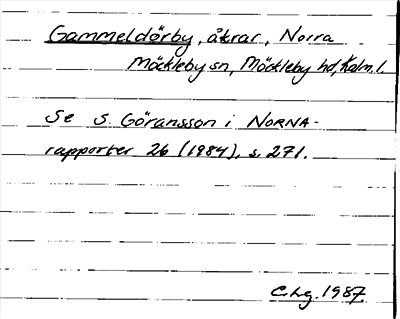 Gammeldörby, åkrar, Norra
Möckleby sn, Möckleby hd, Kalm. l.
Se S. Göransson i NORNA-
rapporter 26 (1984), s. 271.
C.Lg. 1987